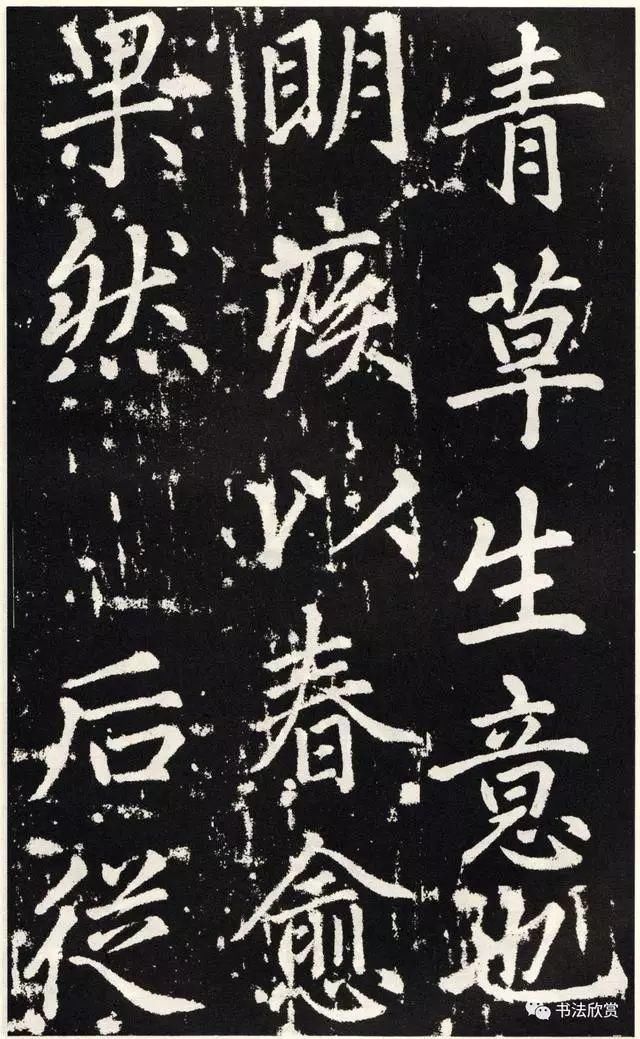 青草生意也
明疾以春愈
果然后從
书法欣赏